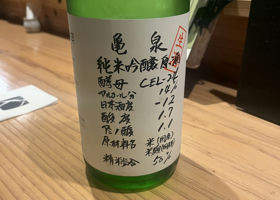 亀泉
純米吟醸原酒
生
酵母 CEL-24
アルコール分 14%
日本酒度 -12
酸度 1.7
アミノ酸 1.1
原材料名 米(国産)
米麹(国産米)
精米歩合 50%